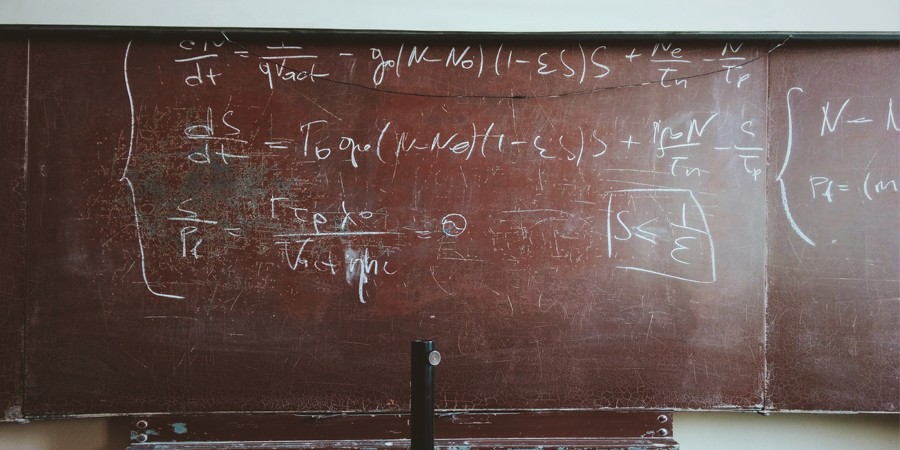 dN/dt = I/qVact - g0(N-N0)(1-εS)S + Ne/τn - N/τp
dS/dt = Γ0 g0(N-N0)(1-εS)S + N/τn - S/τp
S/Pf = Γτpλ0/Vactηhc =
S ≤ 1/ε
N - N
Pf = (m